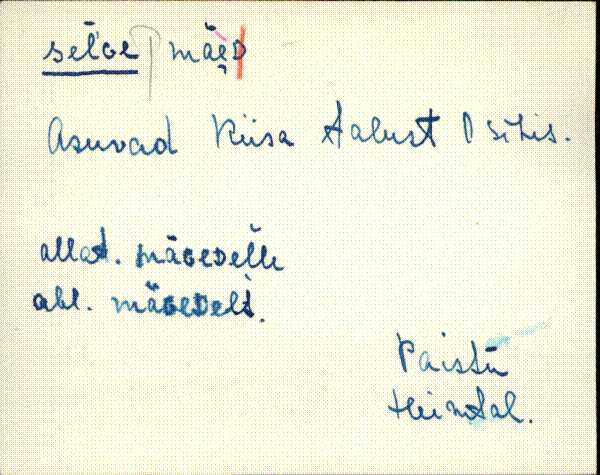 selGe mäeD
Asuvad Kiisa talust I sihis.
allat. mäGeDelle
abl. mäGeDelt.
Paistu
Heimtal.